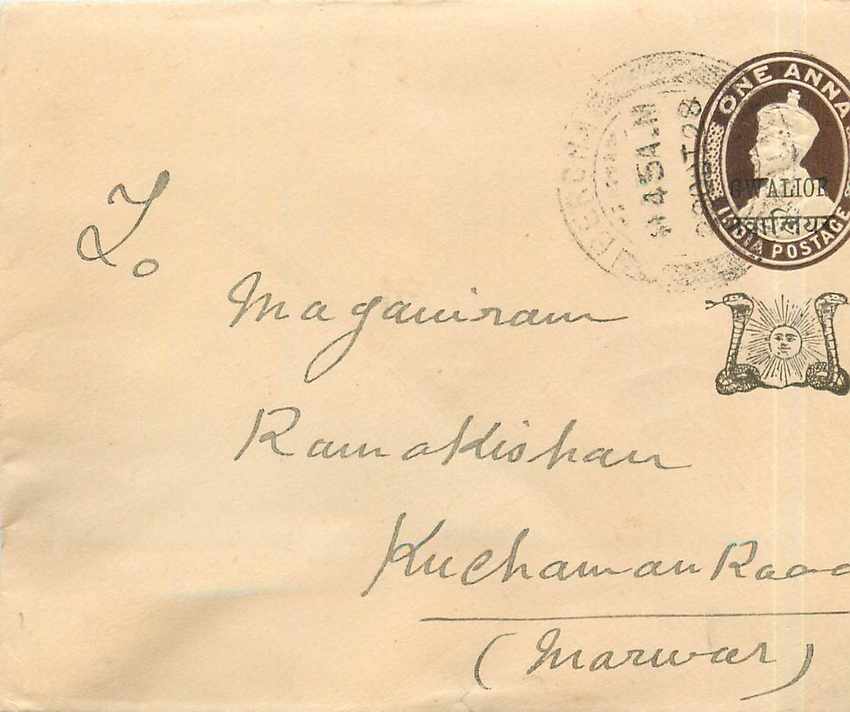 ONE ANNA
GWALIOR
ग्वालियर
INDIA POSTAGE
45 A.M
28
To
Maganiram
Ramakishan
Kuchaman Road
(Marwar)